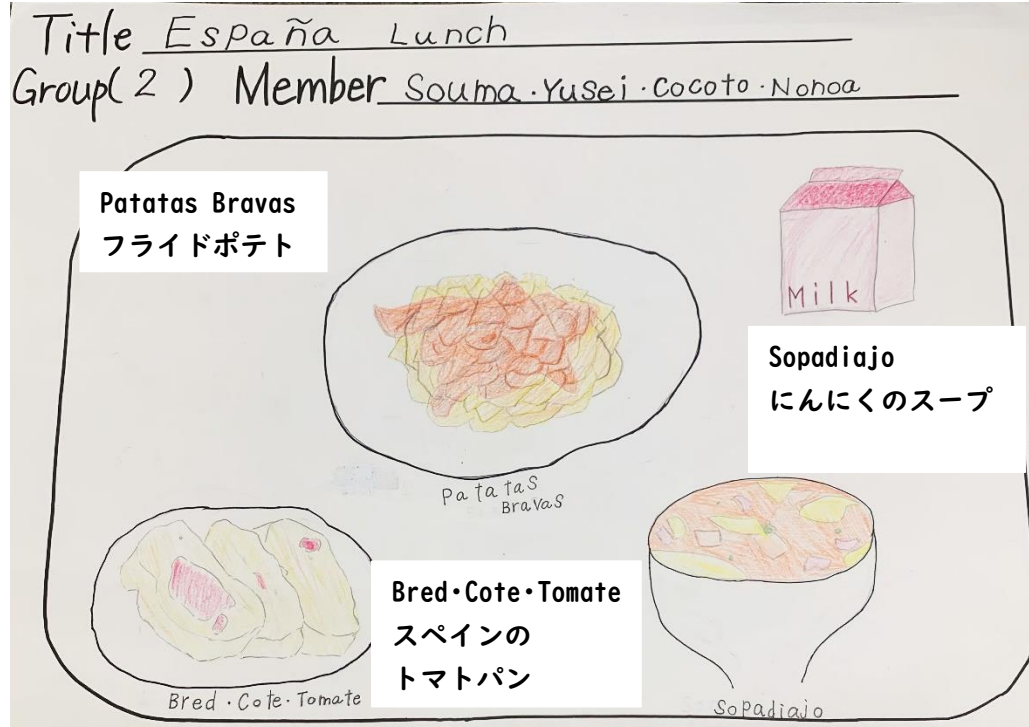 Title España Lunch
Group( 2 ) Member Souma・Yusei・Cocoto・Nonoa
Patatas Bravas
フライドポテト
Milk
Sopadiajo
にんにくのスープ
Patatas
Bravas
Bred・Cote・Tomate
スペインの
トマトパン
Bred・Cote・Tomate
Sopadiajo